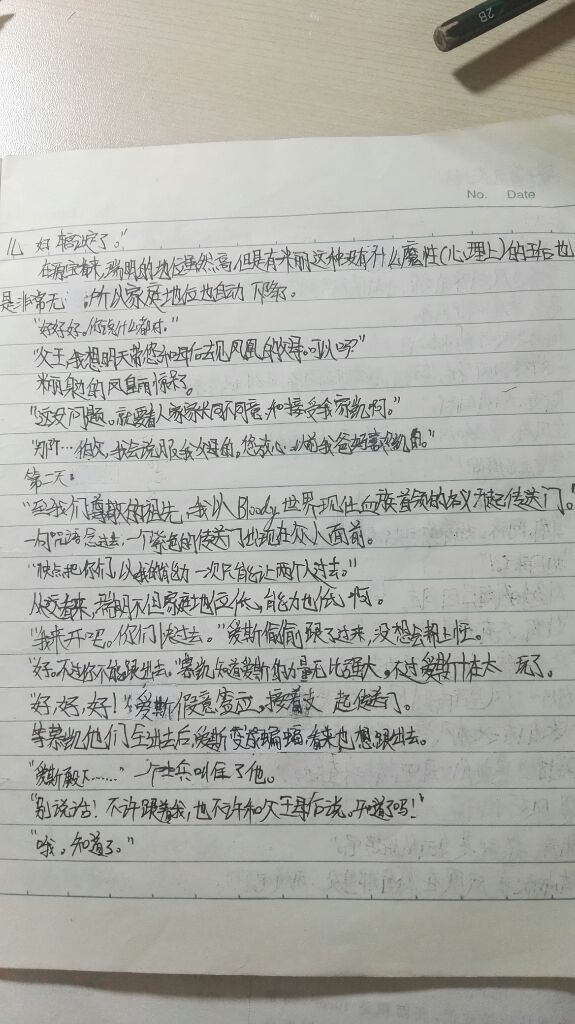 2B
No. Date
儿 好 了。"
在原宝看来,瑞明的地位虽然高,但是有米丽这种没有什么魔性(心理上)的王后也
是非常无 ,所以家庭地位也自动 下降了。
"好好好。你说什么都对。"
"父王,我想明天带您和母后去见凤凰的父母。可以吗?"
米丽身边的凤凰 惊呆了。
"这没问题。就要看人家家长同不同意,和接受我家凯啊。"
" …伯父,我会说服我父母的,您放心,以前我爸妈喜欢凯的。"
第二天:
"至我们尊敬的祖先,我以Bloody世界现任血族首领的名义开起传送门。"
一句咒语念过去,一个紫色的传送门出现在众人面前。
"快点吧你们,以我的能力一次只能让两个人过去。"
从这看来,瑞明不但家庭地位低,能力也低啊。
"我来开吧。你们快过去。"爱斯偷偷跟了过来,没想会帮上忙。
"好。不过你不能跟出去。"慕凯知道爱斯的力量无比强大,不过爱斯 太 玩了。
"好,好,好!"爱斯假意答应,接着支 起传送门。
等慕凯他们全进去后,爱斯变成蝙蝠,看来也想跟出去。
"爱斯殿下……"一个士兵叫住了他。
"别说话!不许跟着我,也不许和父王母后说。知道了吗!"
"哦。知道了。"